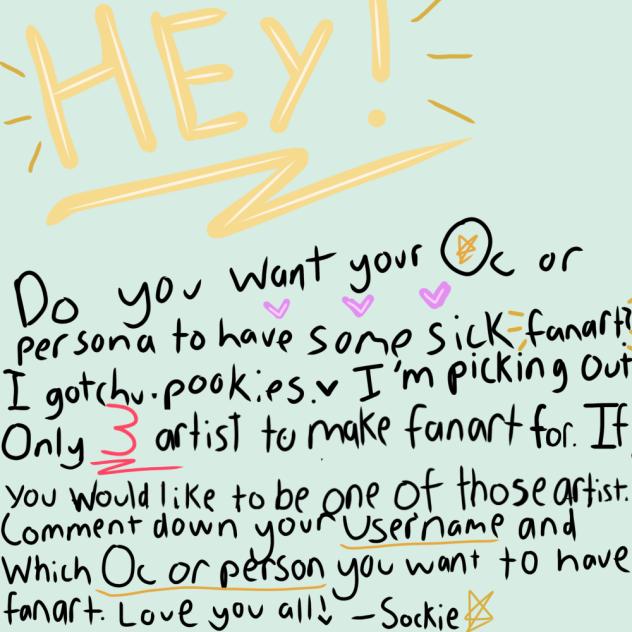 HEY!
Do you want your Oc or
persona to have some sick fanart?
I gotchu. pookies. I'm picking out
Only 3 artist to make fanart for. If
you would like to be one of those artist.
Comment down your username and
which Oc or person you want to have
fanart. Love you all! -Sockie